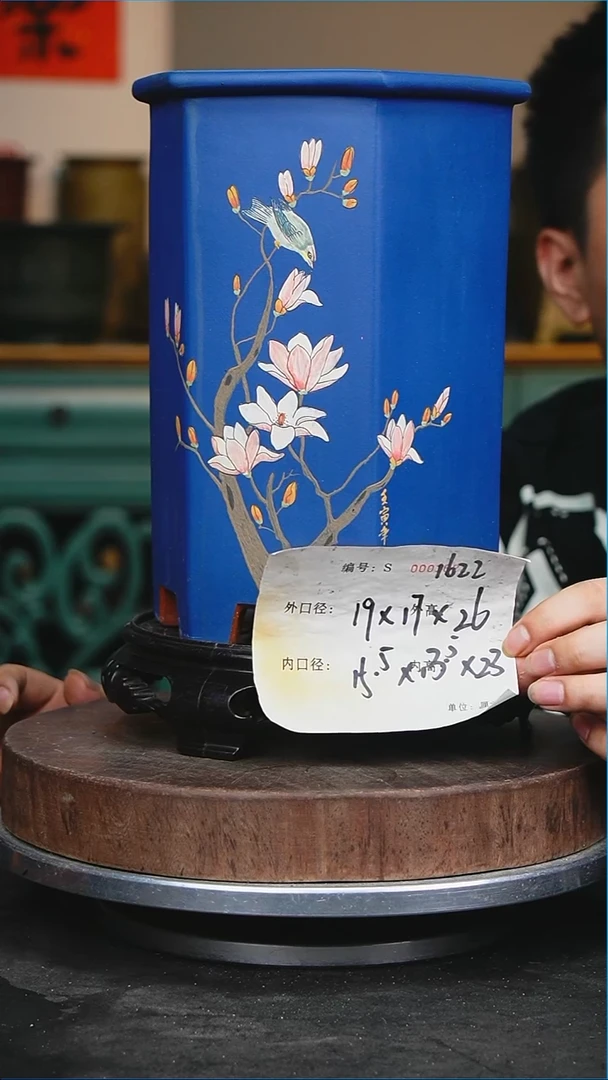 壬寅年
编号: S 0001622
外口径: 19×17×26
内口径: 15.5×13.3×23
单位: